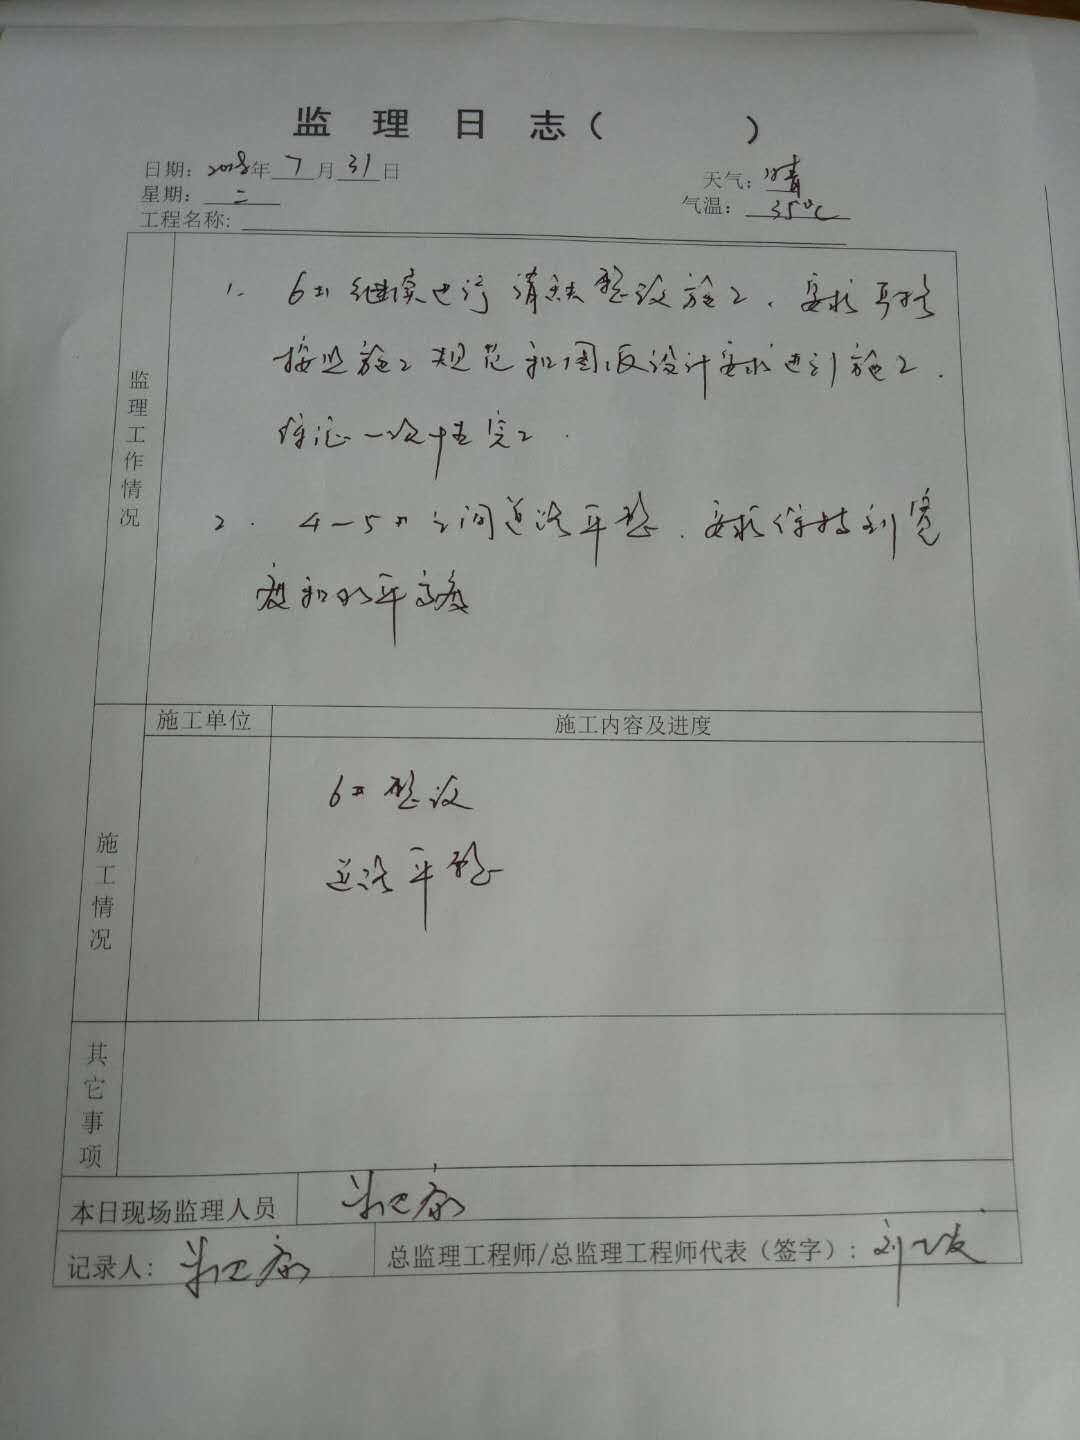 监理日志（ ）
日期：2018年7月31日
天气：晴
星期：二
气温：35℃
工程名称:
监理工作情况
1. 6# 继续进行清表整改施工、要求严格
按照施工规范和图纸设计要求进行施工.
保证一次性完工.
2. 4-5#之间道路平整、要求保持到宽
度和水平高度
施工情况
施工单位
施工内容及进度
6# 整改
道路平整
其它事项
本日现场监理人员
记录人:
总监理工程师/总监理工程师代表（签字）: 刘